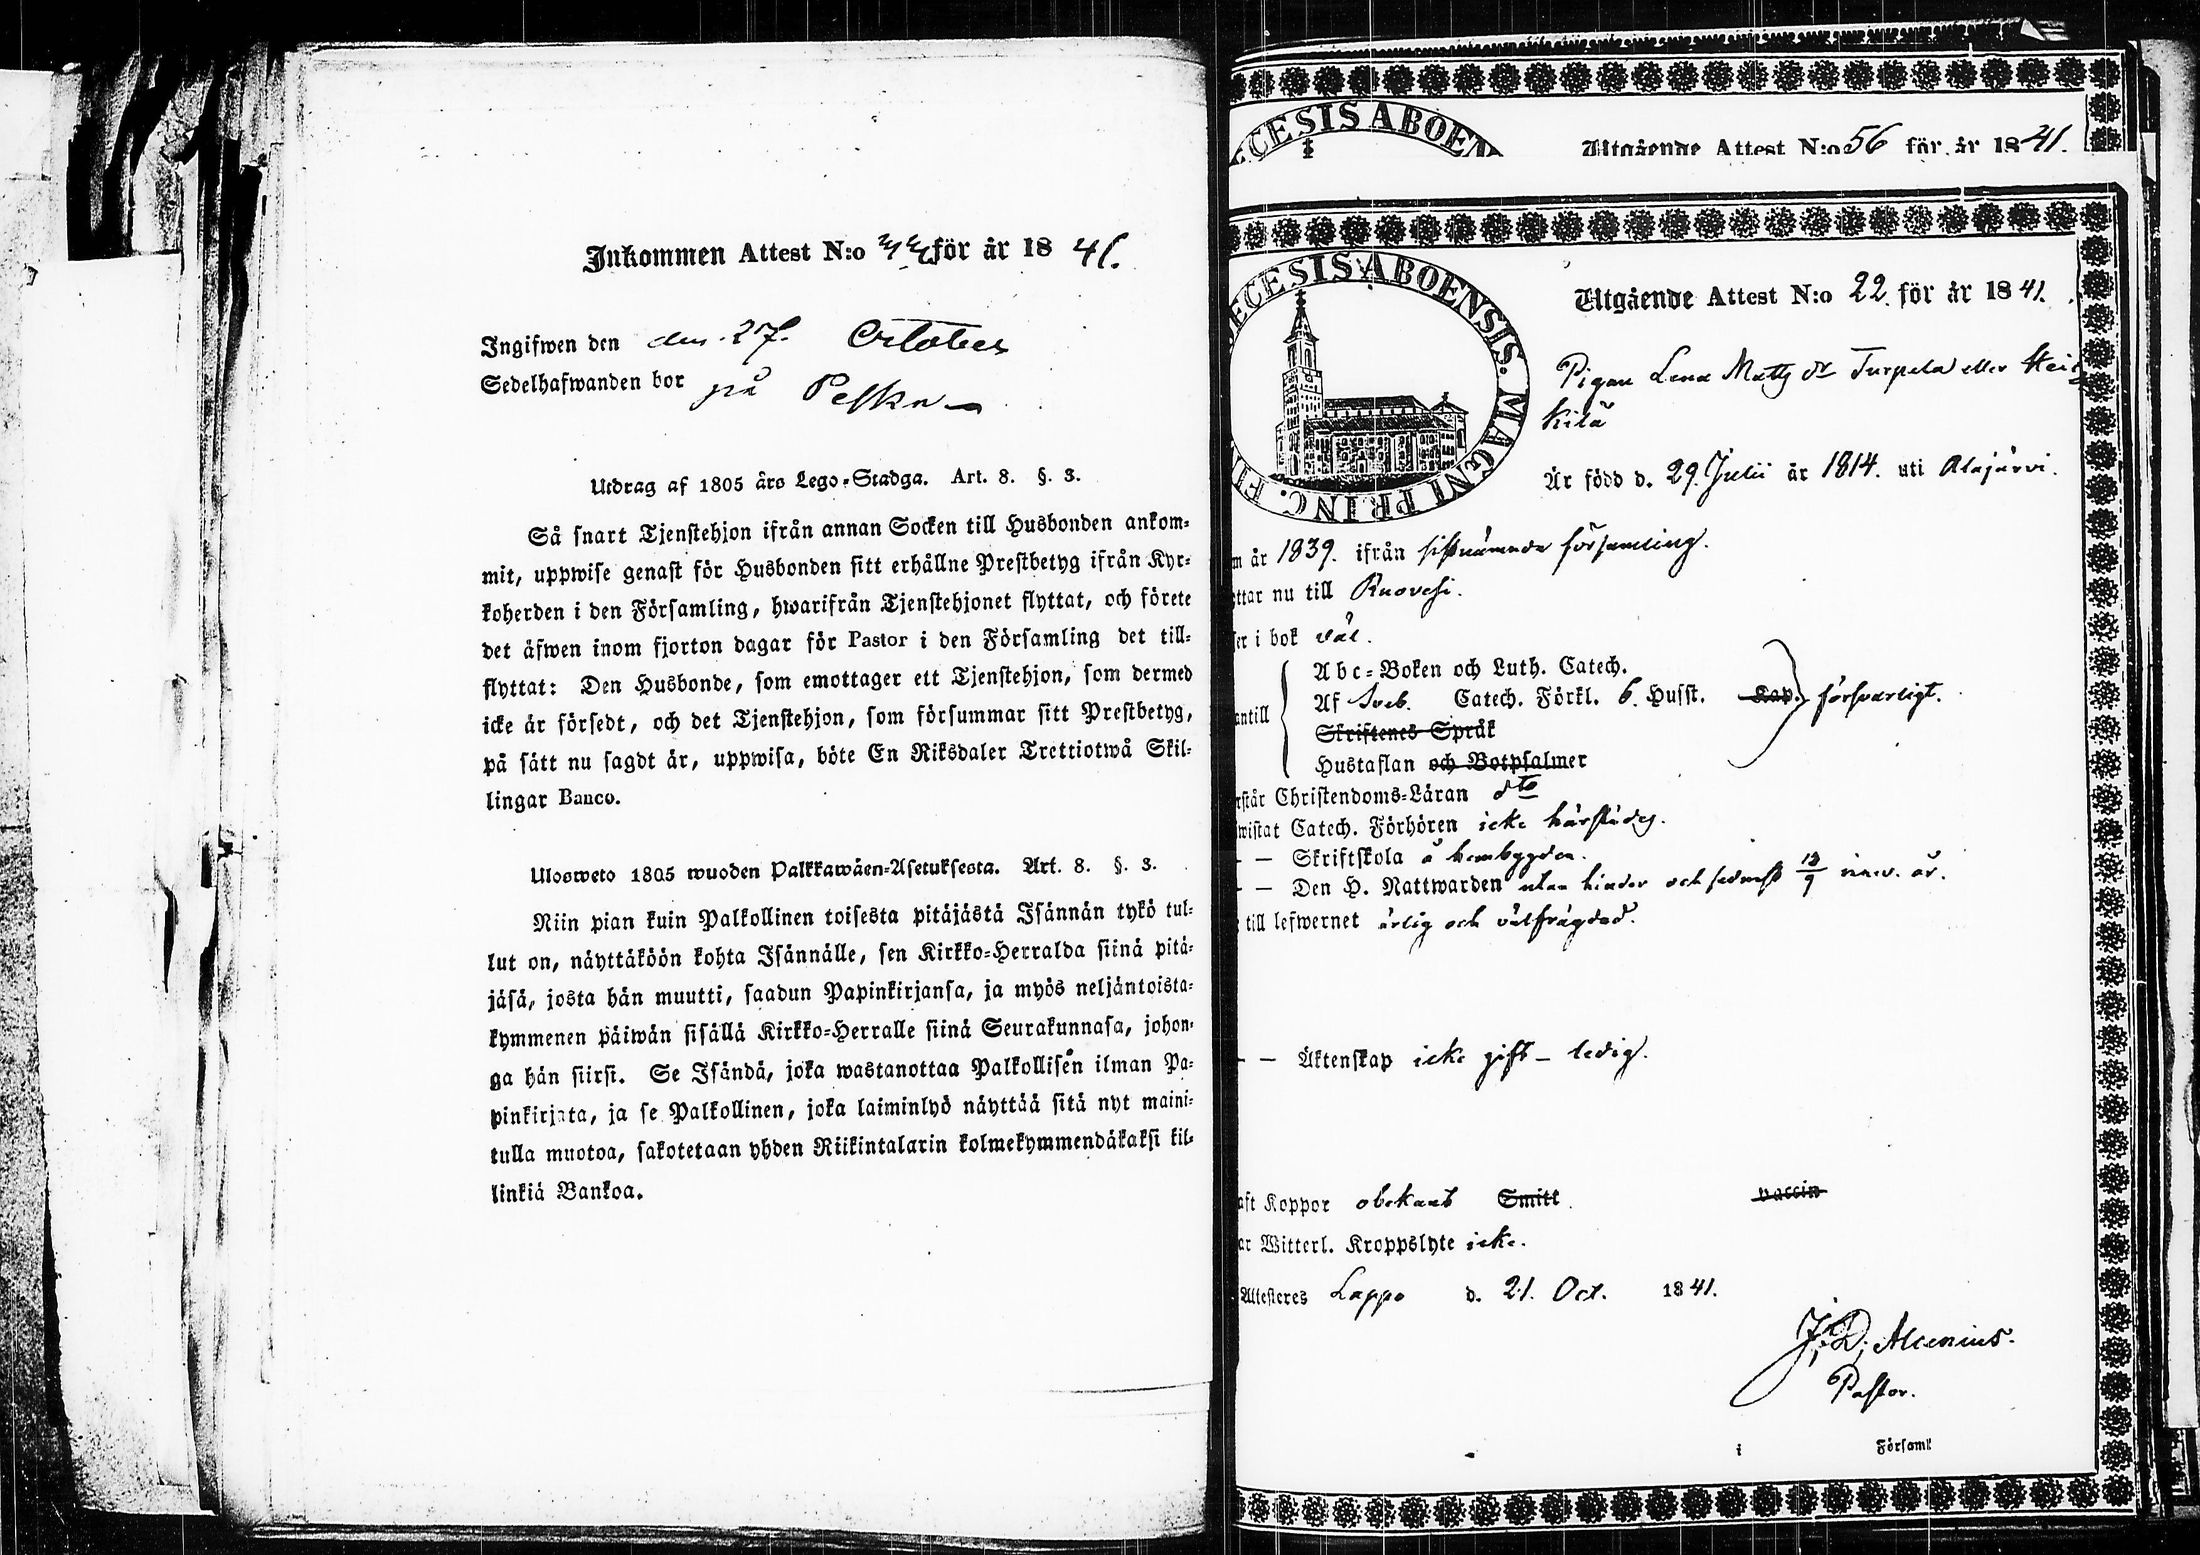 Inkommen Attest N:o 44 för år 1841.
Ingifwen den den 27. October
Sedelhafwanden bor på Pelkn
Utdrag af 1805 års Lego-Stadga. Art. 8. §. 3.
Så snart Tjenstehjon ifrån annan Socken till Husbonden ankom-
mit, uppwise genast för Husbonden sitt erhållne Prestbetyg ifrån Kyr-
koherden i den Församling, hwarifrån Tjenstehjonet flyttat, och förete
det äfwen inom fjorton dagar för Pastor i den Församling det till-
flyttat: Den Husbonde, som emottager ett Tjenstehjon, som dermed
icke är försedt, och det Tjenstehjon, som försummar sitt Prestbetyg,
på sätt nu sagdt är, uppwisa, böte En Riksdaler Trettiotwå Skil-
lingar Banco.
Ulosweto 1805 wuoden Palkkawäen-Asetuksesta. Art. 8. §. 3.
Niin pian kuin Palkollinen toisesta pitäjästä Isännän tykö tul-
lut on, näyttäköön kohta Isännälle, sen Kirkko-Herralda siinä pitä-
jäsä, josta hän muutti, saadun Papinkirjansa, ja myös neljäntoista-
kymmenen päiwän sisällä Kirkko-Herralle siinä Seurakunnasa, johon-
ga hän siirsi. Se Isändä, joka wastanottaa Palkollisen ilman Pa-
pinkirjata, ja se Palkollinen, joka laiminlyö näyttää sitä nyt maini-
tulla muotoa, sakotetaan yhden Riikintalarin kolmekymmendäkaksi kil-
linkiä Bankoa.
CESIS ABOEN
Utgående Attest N:o 56 för år 1841.
ECESIS ABOENSIS. MAGNI PRINC. FI
Utgående Attest N:o 22. för år 1841.
Pigan Lena Matts dr Turpela eller Hei
kilä
Är född d. 29. Julii år 1814. uti Alajärvi.
m år 1839. ifrån sistnämnde församling.
ttar nu till Ruovesi.
er i bok väl.
Abc-Boken och Luth. Catech.
antill Af Sveb. Catech. Förkl. 6. Husst. Kap. försvarligt.
Skriftenes Språk
Hustaflan och Botpsalmer
rstår Christendoms-Läran dto
wistat Catech. Förhören icke härstädes.
— — Skriftskola å hembygden.
— — Den H. Nattwarden utan hinder och sednast 12/9 innev. år.
till lefwernet ärlig och välfrägdad.
— — Äktenskap icke gift – ledig.
aft Koppor obekant Smitt. vaccin
ar Witterl. Kroppslyte icke.
Attesteres Lappo d. 21. Oct. 1841.
J. D. Alcenius.
Pastor.
i Församl